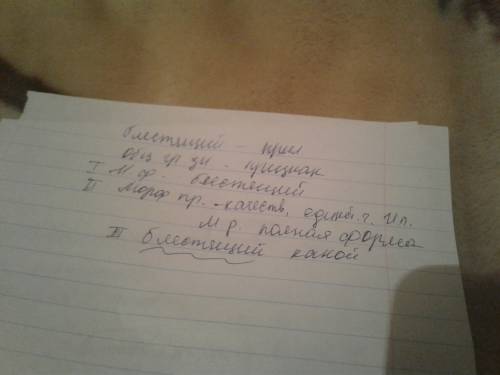 блестящий - прил
Общ гр. зн. - признак
I Н. ф. - блестящий
II Морф пр. - качеств, единств. ч. Ип.
М р. полная форма
III блестящий какой